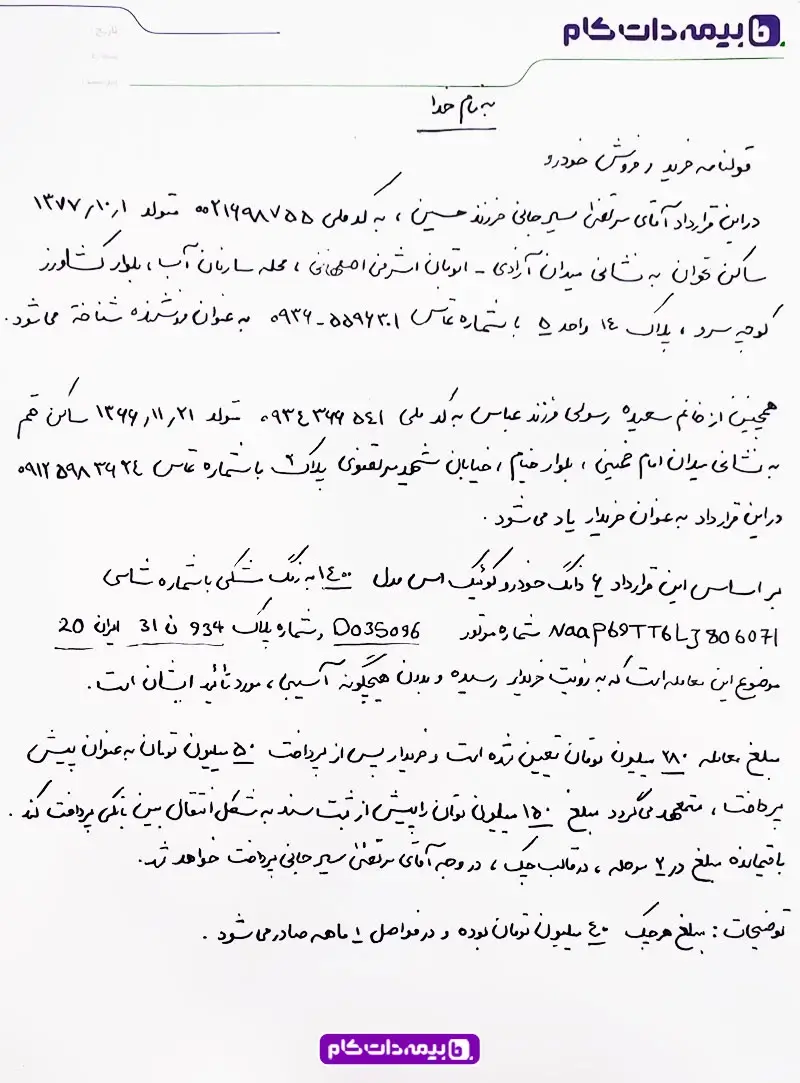 بیمه دات کام
به نام خدا
قولنامه خرید و فروش خودرو
در این قرارداد آقای مرتضی سیرجانی فرزند حسین ، به کد ملی ۰۰۲۱۶۹۸۷۵۵ متولد ۱۳۷۷/۱۰/۱
ساکن تهران به نشانی میدان آزادی - اتوبان اشرفی اصفهانی ، محله سازمان آب ، بلوار کشاورز
کوچه سرو ، پلاک ۱۴ واحد ۵ با شماره تماس ۰۹۳۶-۵۵۹۶۳۰۱ به عنوان فروشنده شناخته می‌شود.
همچنین از خانم سعیده رسولی فرزند عباس به کد ملی ۰۹۳۴۳۶۶۵۴۱ متولد ۱۳۶۶/۱۱/۲۱ ساکن قم
به نشانی میدان امام خمینی ، بلوار خیام ، خیابان شهید مرتضوی پلاک ۲ با شماره تماس ۰۹۱۲۵۹۸۳۶۲۴
در این قرارداد به عنوان خریدار یاد می‌شود .
بر اساس این قرارداد ۶ دانگ خودرو کوئیک اس مدل ۱۴۰۰ به رنگ مشکی با شماره شاسی
NaaP69TT6LJ806071 شماره موتور D035096 و شماره پلاک 934 ن 31 ایران 20
موضوع این معامله است که به رؤیت خریدار رسیده و بدون هیچگونه آسیبی ، مورد تأئید ایشان است .
مبلغ معامله ۲۸۰ میلیون تومان تعیین شده است و خریدار پس از پرداخت ۵۰ میلیون تومان به عنوان پیش
پرداخت ، متعهد می‌گردد مبلغ ۱۵۰ میلیون تومان را پیش از ثبت سند به شکل انتقال بین بانکی پرداخت کند .
باقیمانده مبلغ در ۲ مرحله ، در قالب چک ، در وجه آقای مرتضی سیرجانی پرداخت خواهد شد.
توضیحات : مبلغ هر چک ۴۰ میلیون تومان بوده و در فواصل ۱ ماهه صادر می‌شود .
بیمه دات کام